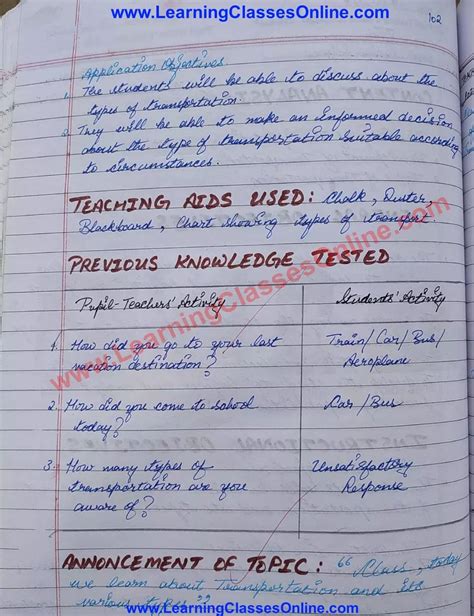 www.LearningClassesOnline.com
102
Application Objectives
1. The students will be able to discuss about the
types of transportation.
2. They will be able to make an informed decision
about the type of transportation suitable according
to circumstances.
TEACHING AIDS USED: Chalk, Duster,
Blackboard, Chart showing types of transport
PREVIOUS KNOWLEDGE TESTED
Pupil-Teachers' Activity Students' Activity
1. How did you go to your last Train/Car/Bus/
vacation destination? Aeroplane
2. How did you come to school Car/Bus
today?
3. How many types of Unsatisfactory
transportation are you Response
aware of?
www.LearningClassesOnline.com
ANNONCEMENT OF TOPIC: "Class, today
we learn about Transportation and its
various types"
www.LearningClassesOnline.com